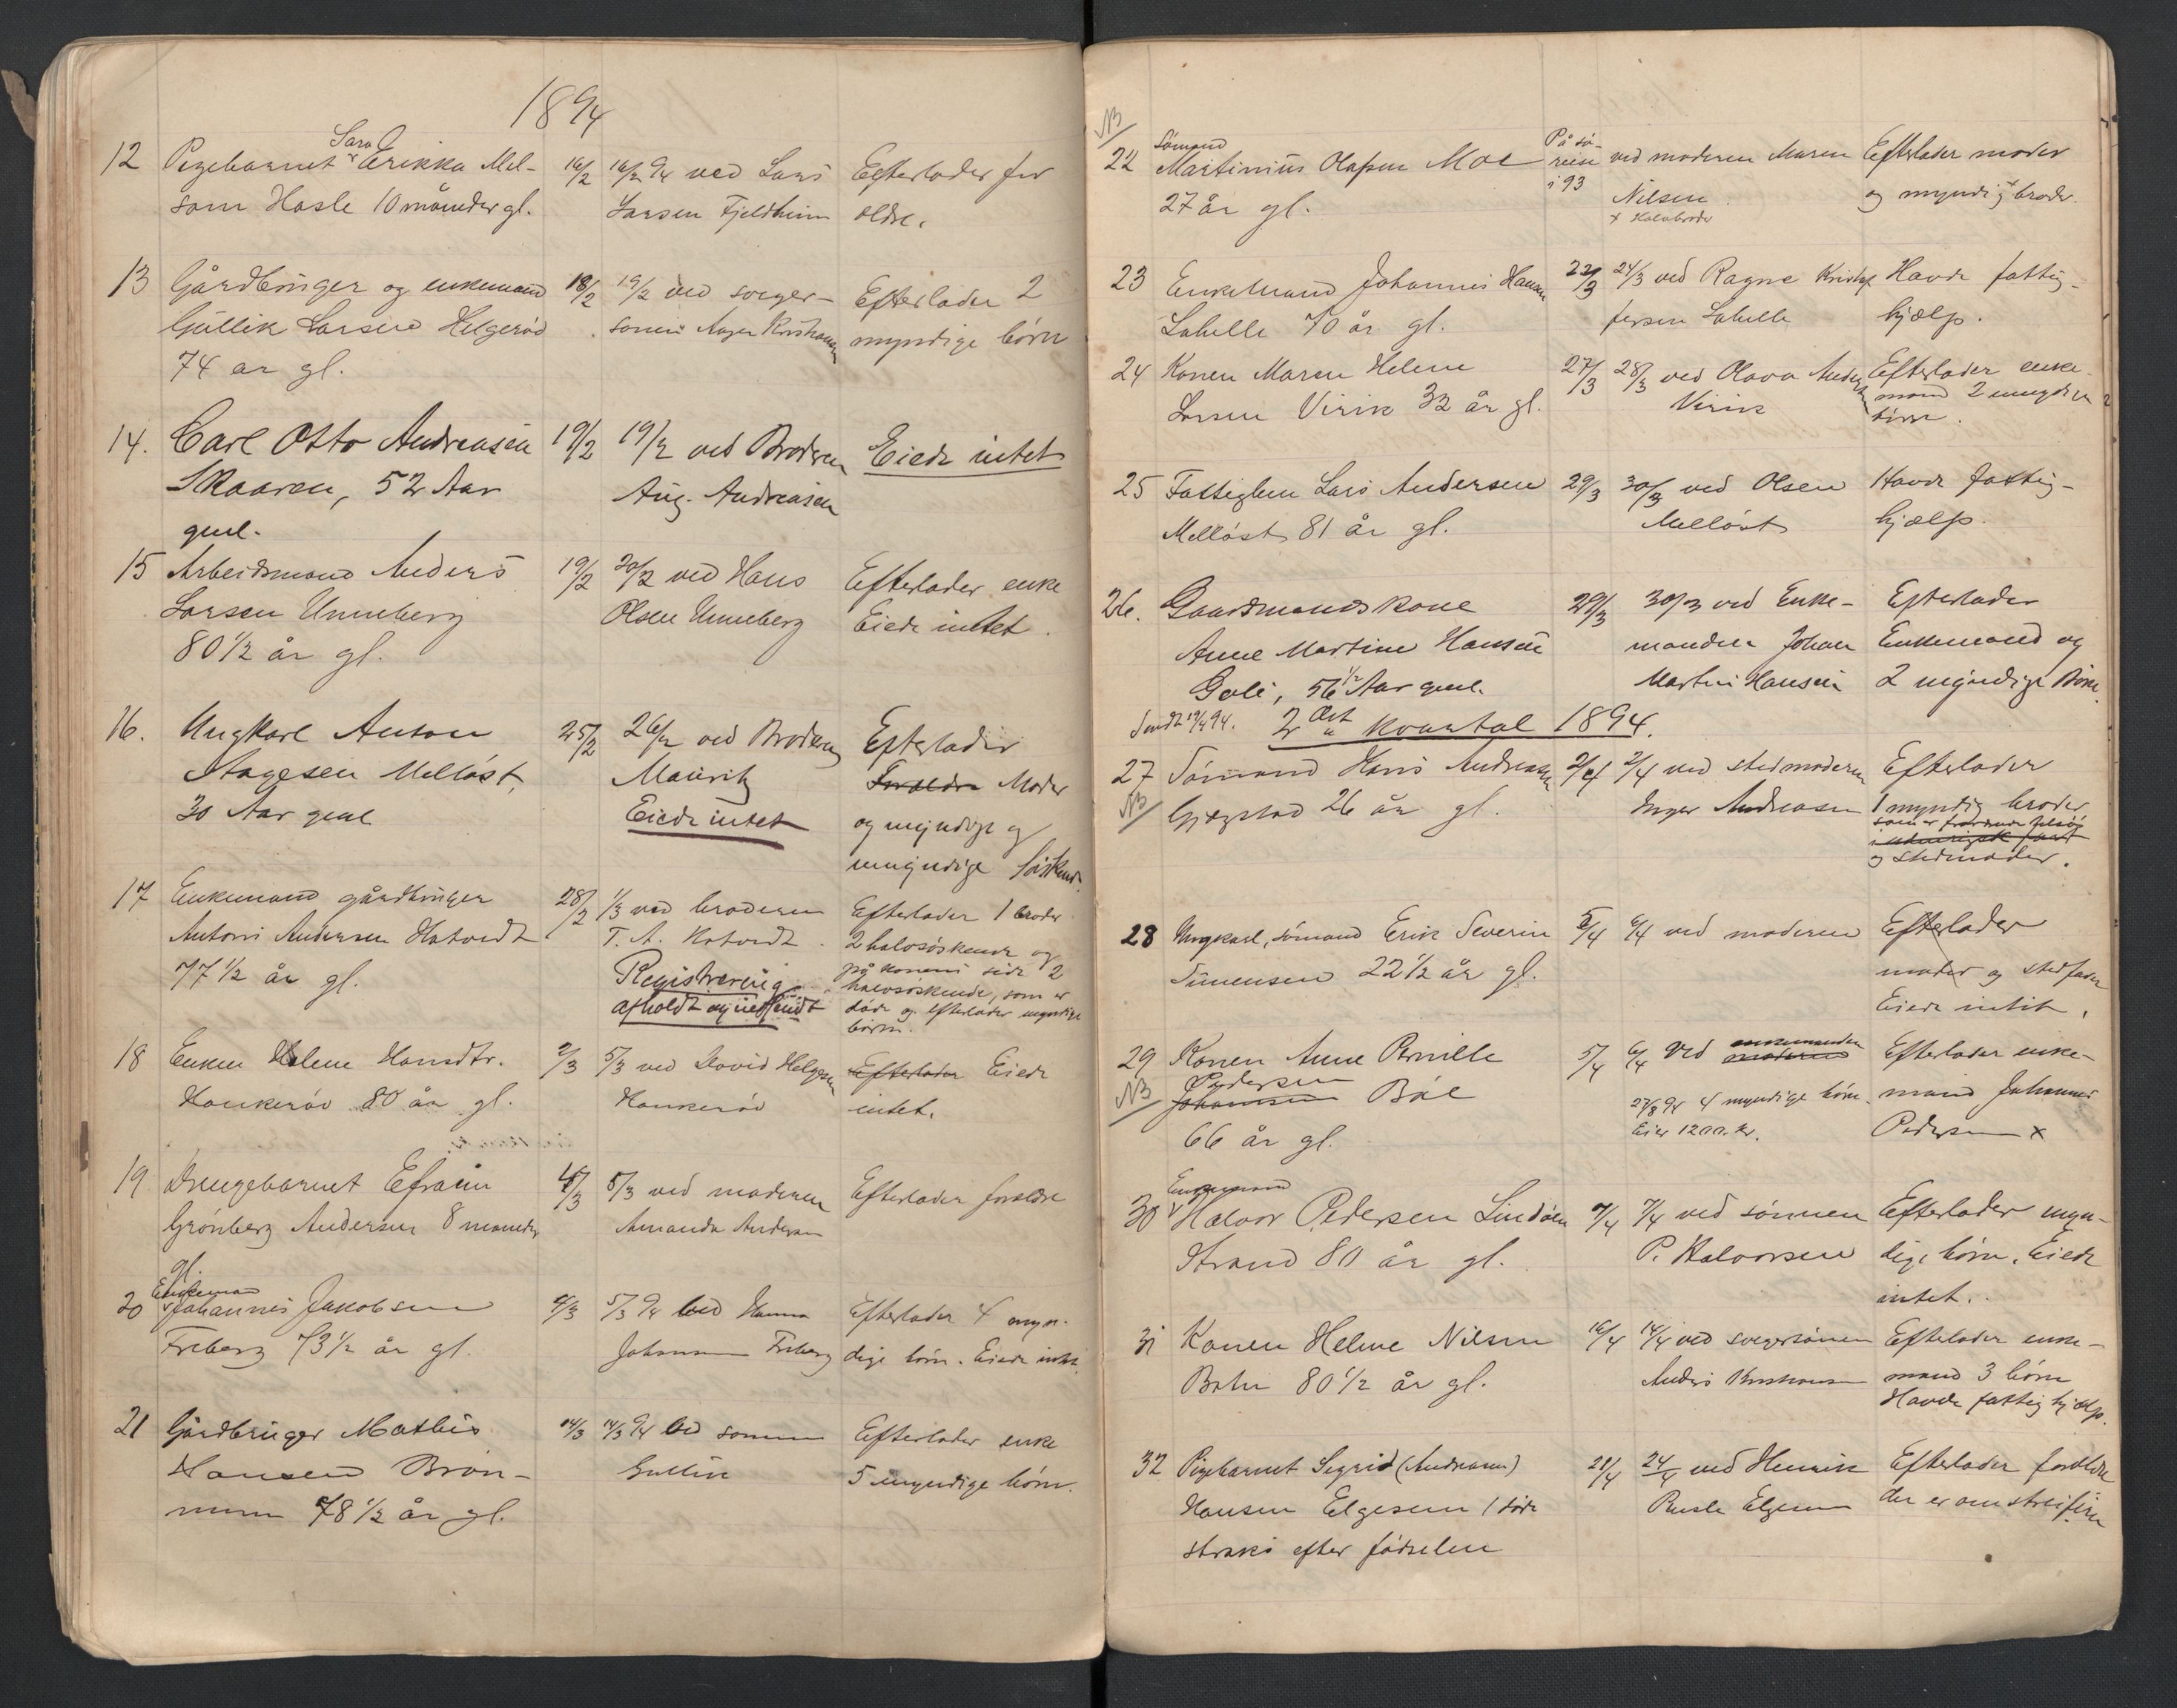 1894
12 Pigebarnet Sara Erikka Mel-
som Hasle 10 måneder gl.
16/2
16/2 94 ved Lars
Larsen Fjeldheim
Efterlader for
ældre.
13 Gårdbruger og enkemand
Gullik Larsen Helgerød
74 år gl.
18/2
19/2 ved svoger-
sønnen Kristiansen
Efterlader 2
myndige børn
14. Carl Otto Andreasen
Skaaren, 52 Aar
gml.
19/2
19/2 ved Broderen
Aug. Andreasen
Eiede intet
15 Arbeidsmand Anders
Larsen Unneberg
80 1/2 år gl.
19/2
20/2 ved Hans
Olsen Unneberg
Efterlader enke
Eiede intet.
16. Ungkarl Anton
Aagesen Melløst,
30 Aar gml
25/2
26/2 ved Broderen
Mauritz
Eiede intet
Efterlader
Forældre Moder
og myndige og
umyndige Søskende.
17 Enkemand gårdbruger
Antoni Andersen Hotvedt
77 1/2 år gl.
28/2
1/3 ved broderen
T. A. Hotvedt.
Registrering
afholdt og indsendt
Efterlader 1 broder
2 halvsøskende og
på konens side 2
halvsøskende, som er
døde og efterlader myndige
børn.
18 Enken Helene Hansdtr.
Haukerød 80 år gl.
2/3
5/3 ved David Helgesen
Haukerød
Efterlader Eiede
intet.
19 Drengebarnet Efraim
Grønberg Andersen 8 måneder
gl.
5/3
5/3 ved moderen
Amanda Andersen
Efterlader forældre
20 Enkemand Johannes Jakobsen
Freberg 73 1/2 år gl.
5/3 94 ved Hanna
Johansen Freberg
Efterlader 4 myn-
dige børn. Eiede intet
21 Gårdbruger Mathis
Hansen Brøn-
num 78 1/2 år gl.
14/3
14/3 94 ved sønnen
Gullik
Efterlader enke
5 myndige børn.
NB
22 Sømand
Martinius Olafsen Moe
27 år gl.
På sø-
reise
i 93
ved moderen Maren
Nilsen
x Halvbroder
Efterlader moder
og myndig x broder.
23 Enkemand Johannes Hansen
Lahelle 70 år gl.
22/3
24/3 ved Ragne Kristof
fersen Lahelle
Havde fattig-
hjælp.
24 Konen Maren Helene
Larsen Virik 32 år gl.
27/3
28/3 ved Olava Andersen
Virik
Efterlader enke-
mand 2 umyndige
børn.
25 Fattiglem Lars Andersen
Melløst 81 år gl.
29/3
30/3 ved Olsen
Melløst
Havde fattig-
hjælp.
26. Gaardmandskone
Anne Martine Hansen
Gali, 56 1/2 Aar gml.
29/3
30/3 ved Enke-
manden Johan
Martin Hansen
Efterlader
Enkemand og
2 myndige Børn
Sendt 19/4 94. 2det kvartal 1894.
27 Sømand Hans Andreasen
NB Gjegstad 26 år gl.
2/4
2/4 ved stedmoderen
Inger Andreasen
Efterlader
1 myndig broder
som er
og stedmoder.
28 Ungkarl, sømand Erik Severin
Simensen 22 1/2 år gl.
5/4
6/4 ved moderen
Efterlader
moder og stedfader
Eiede intet.
29 Konen Anne Pernille
NB Pedersen
Johannsen Bøe
66 år gl.
5/4
6/4 ved enkemanden
moderen
27/8 94 4 myndige børn.
Eier 1200 Kr.
Efterlader enke-
mand Johannes
Pedersen x
30 Enkemand
Halvor Pedersen Lindøen
Strand 80 år gl.
7/4
7/4 ved sønnen
P. Halvorsen
Efterlader myn-
dige børn. Eiede
intet.
31 Konen Helene Nilsen
Bohn 80 1/2 år gl.
ved svigersønnen
Anders Kristiansen
Efterlader enke-
mand 3 børn
Havde fattighjælp.
32 Pigebarnet Sigrid (Andrea)
Hansen Elgesem (døde
straks efter fødselen
21/4
24/4 ved Henrik
Elgesem
Efterlader forældre
der er omstreifere